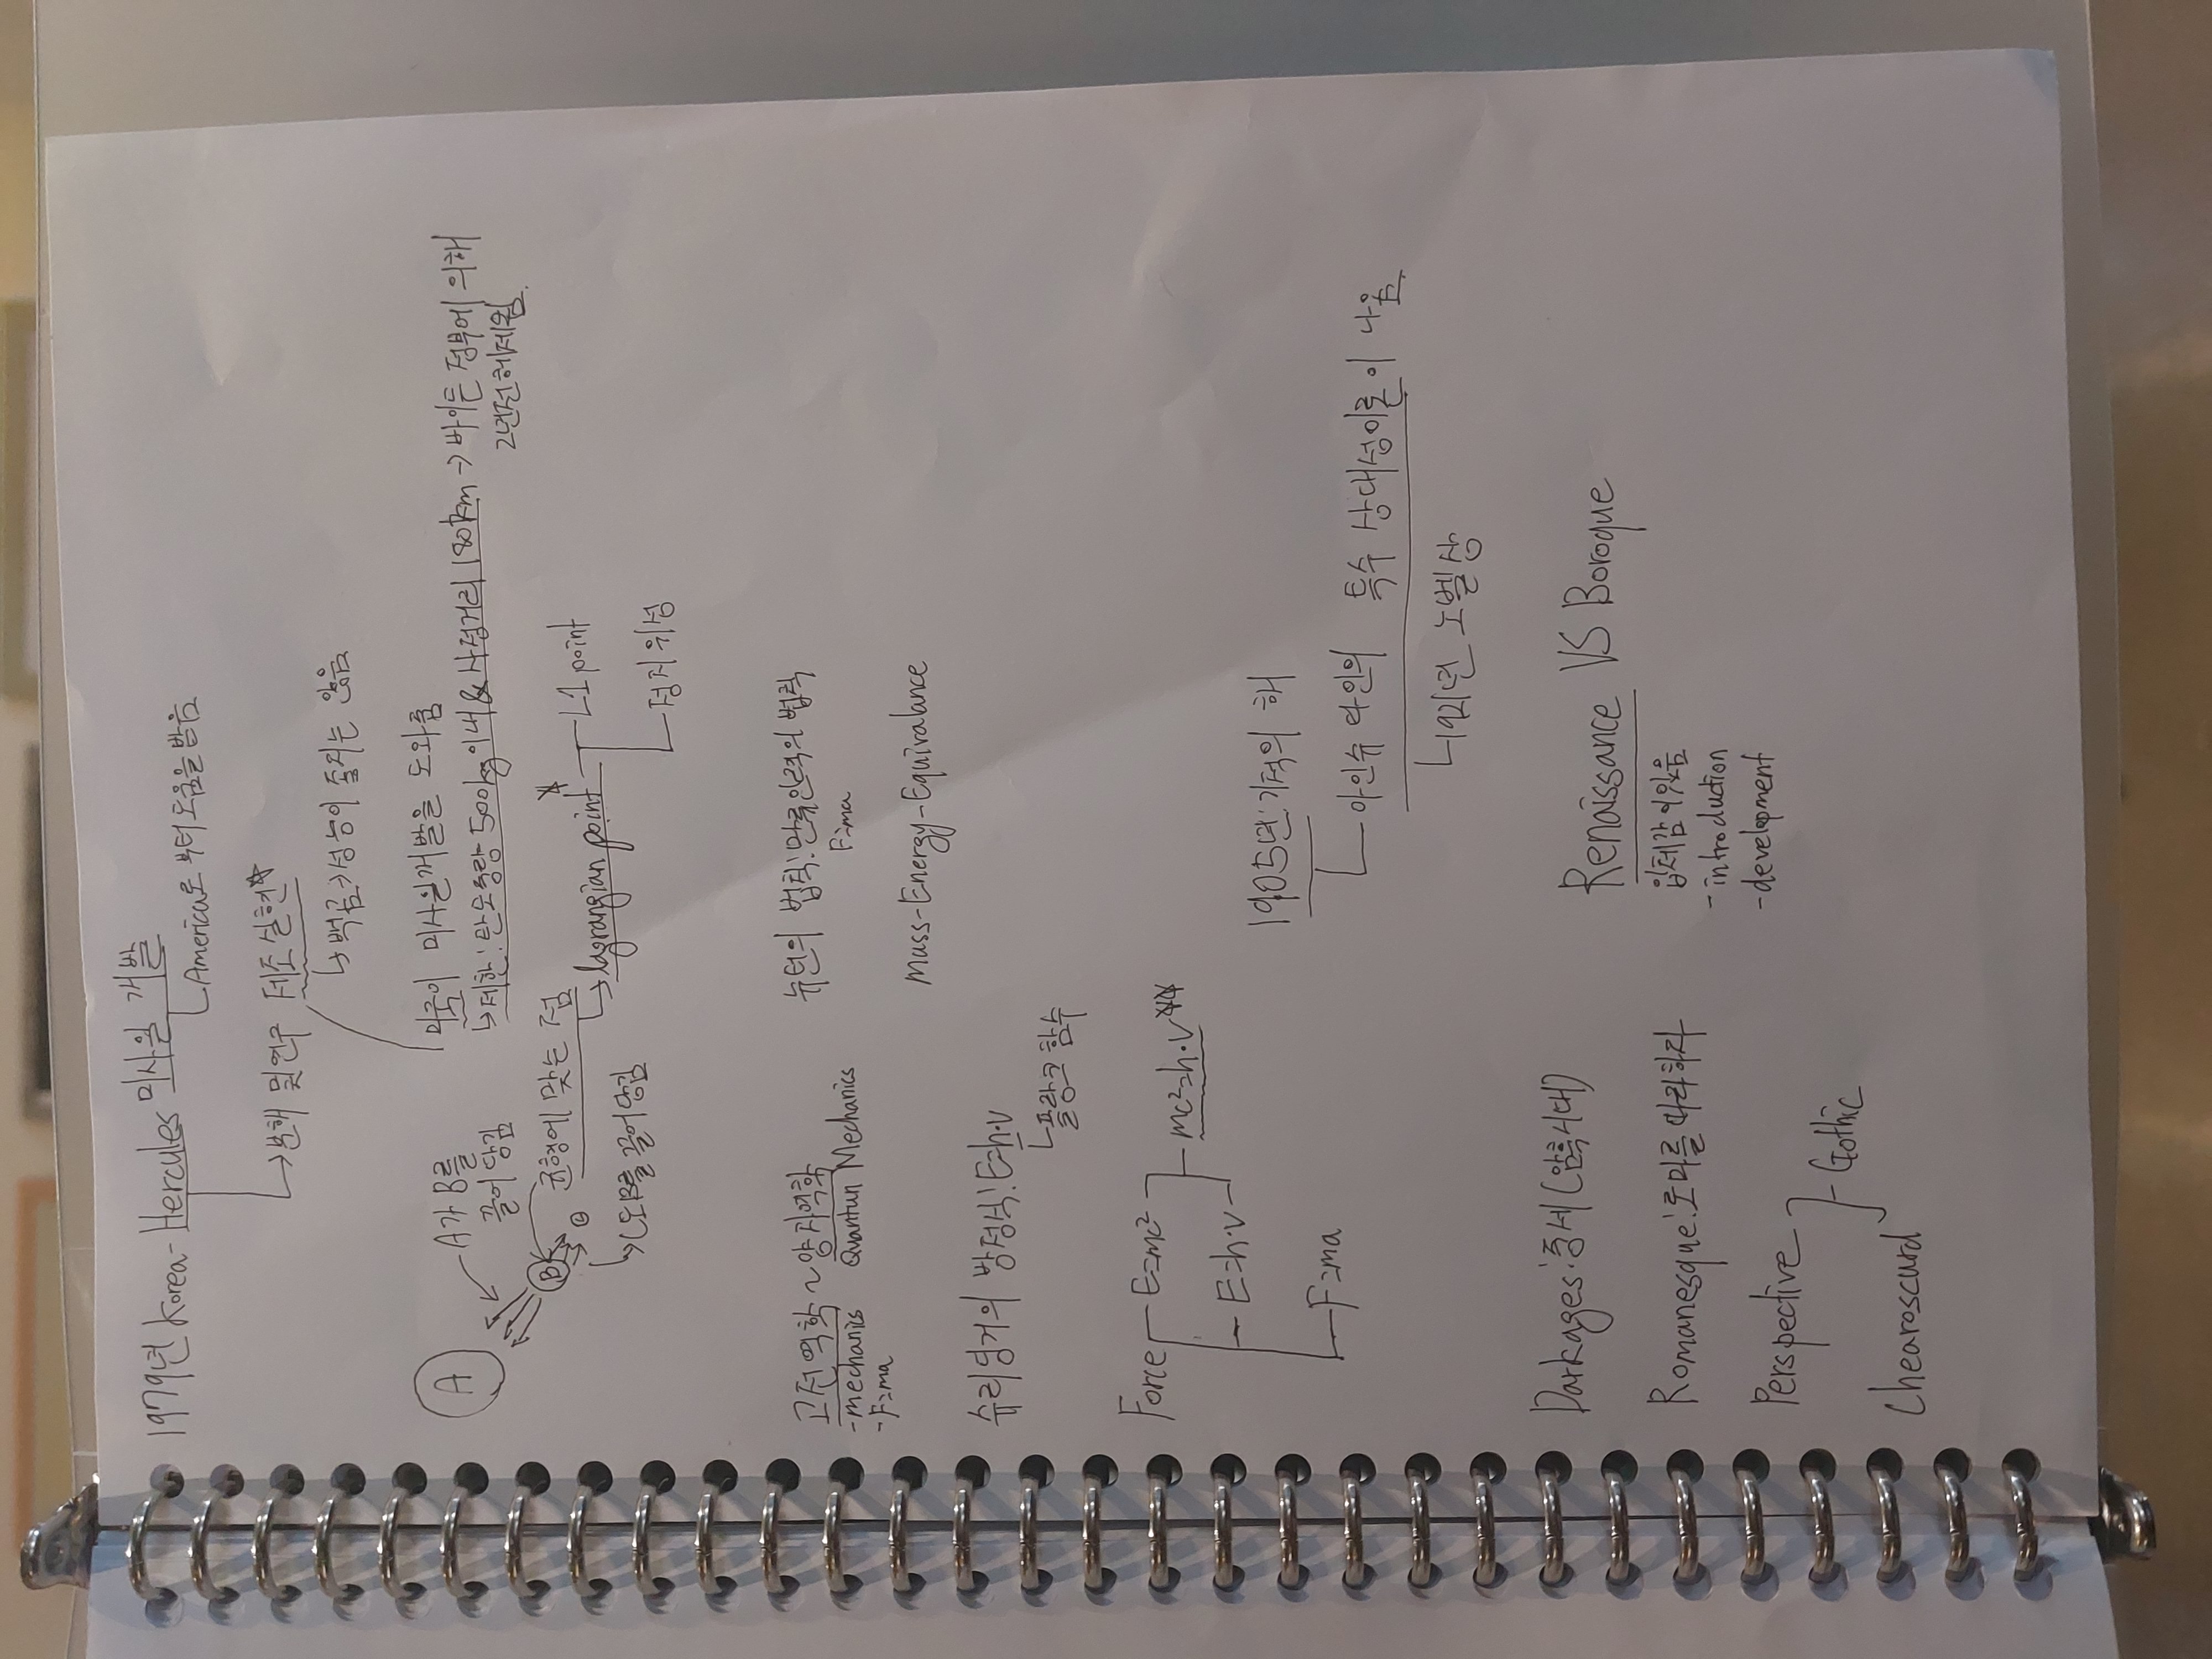 1979년 Korea - Hercules 미사일 개발
America로 부터 도움을 받음
→ 분해 및 연구 제조 실현☆
↳ 백곰 > 성능이 좋지는 않음
미국이 미사일개발을 도와줌
↳ 제한: 탄도중량 500kg이내 & 사정거리 180km → 바이든 정부에 의해
2년전 해제됨.
A가 B를
끌어 당김
A
B
균형에 맞는 점
↳ lagrangian point ☆
L1 point
정지위성
↳ B를 끌어당김
고전역학 ~ 양자역학
- mechanics Quantun Mechanics
- F=ma
뉴턴의 법칙: 만류인력의 법칙
F=ma
Mass-Energy-Equivalance
슈뢰딩거의 방정식: E=h·v
플랑크 함수
Force
E=mc²
E=h·v
mc²=h·v ☆☆
F=ma
1905년: 기적의 해
아인슈타인의 특수 상대성이론이 나옴
1921년 노벨상
Darkages: 중세 (암흑시대)
Romanesque: 로마를 따라하자
Perspective
Chearoscurd
Gothic
Renaissance VS Boroque
입체감이있음
- introduction
- development